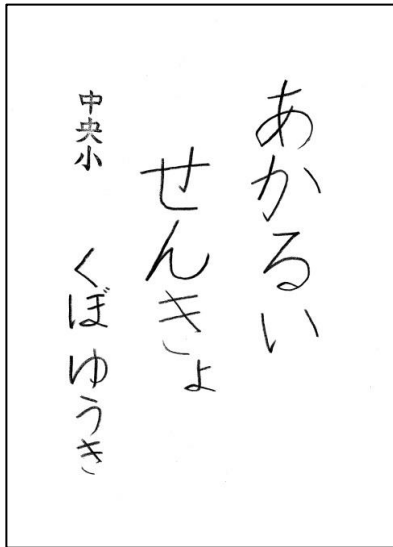 あかるい
せんきょ
中央小 くぼ ゆうき